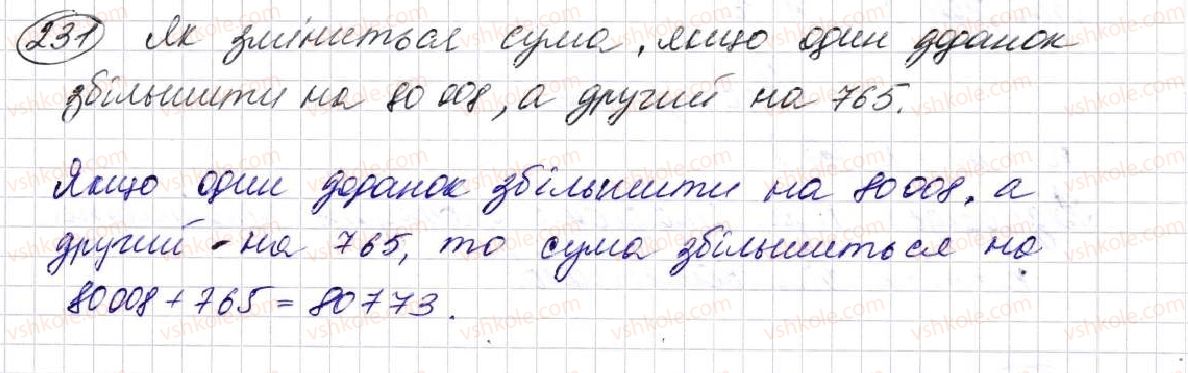 231 Як зміниться сума, якщо один доданок
збільшити на 80 008, а другий на 765.
Якщо один доданок збільшити на 80 008, а
другий - на 765, то сума збільшиться на
80 008 + 765 = 80 773.